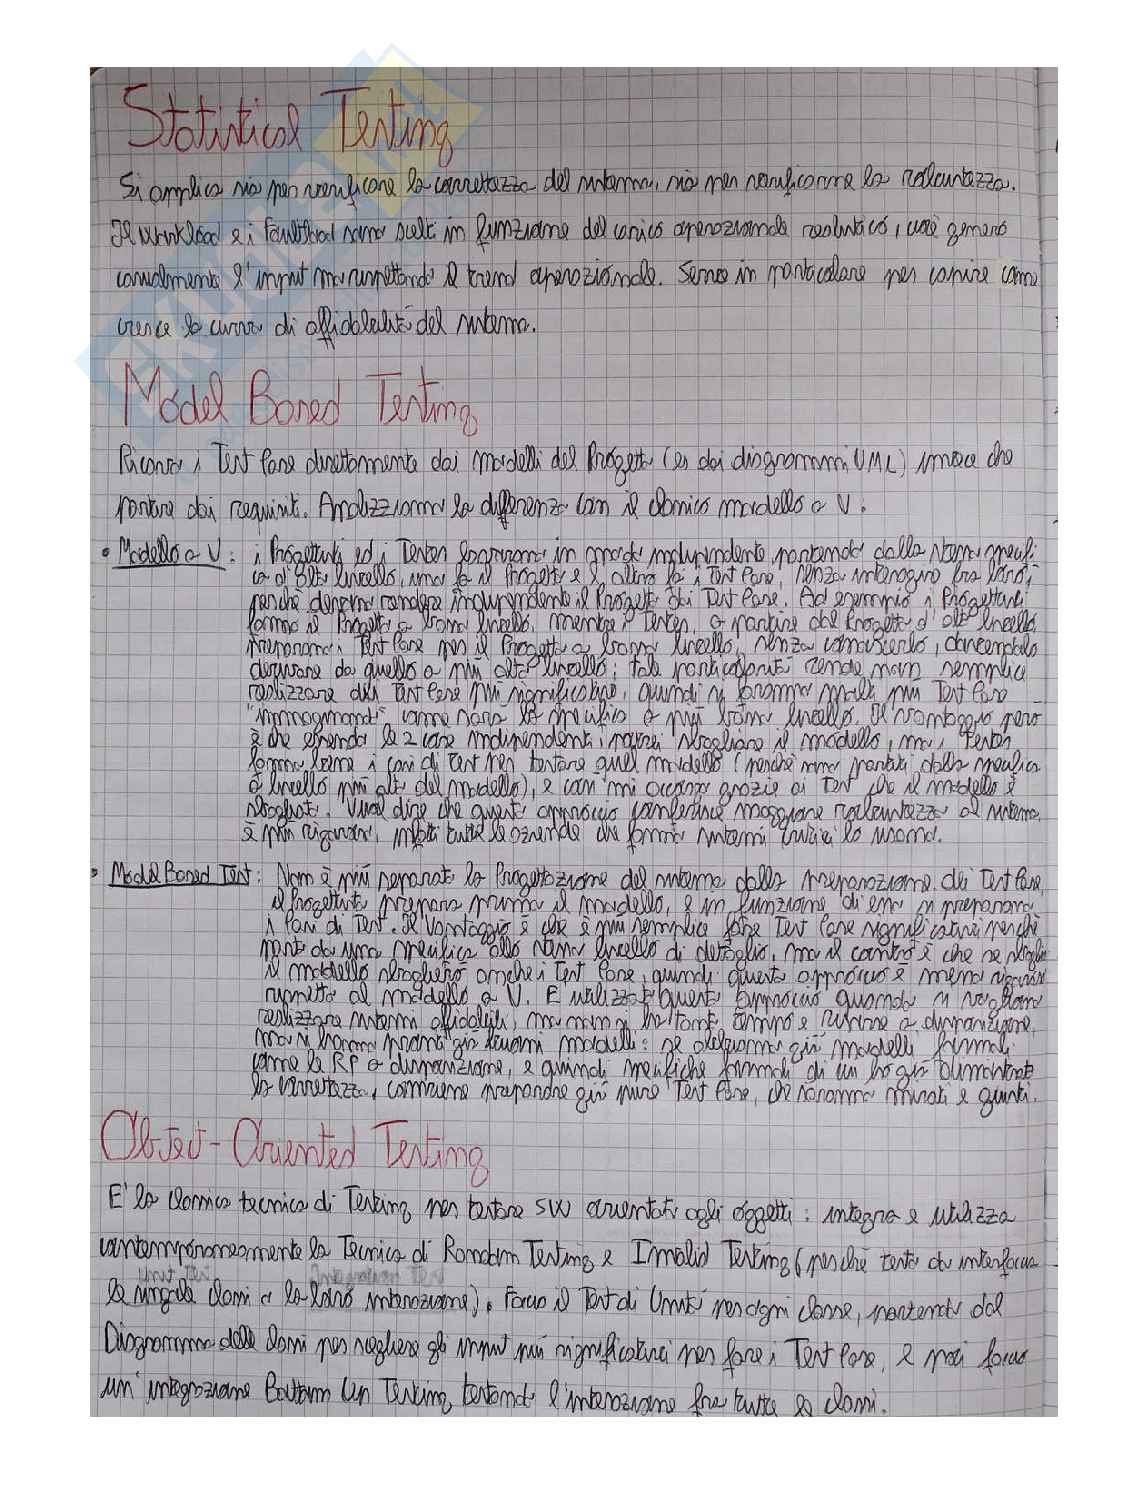 Statistical Testing
Si applica sia per verificare la correttezza del sistema, sia per verificarne la robustezza.
Il workload e i faultload sono scelti in funzione del carico operazionale realistico, cioè genero
casualmente l'input ma rispettando il trend operazionale. Serve in particolare per capire come
cresce la curva di affidabilità del sistema.
Model Based Testing
Ricavo i Test Case direttamente dai modelli del Progetto (es dai diagrammi UML) invece che
partire dai requisiti. Analizziamo la differenza con il classico modello a V:
• Modello a V: i Progettisti ed i Tester lavorano in modo indipendente partendo dalla stessa specifi
ca di alto livello, uno fa il Progetto e l'altro fa i Test Case, senza interagire fra loro,
perché devono rendere indipendente il Progetto dai Test Case. Ad esempio i Progettisti
fanno il Progetto a basso livello, mentre i Tester, a partire dal Progetto d'alto livello
preparano i Test Case per il Progetto a basso livello, senza conoscerlo, dovendolo
derivare da quello a più alto livello; tale particolarità rende non semplice
realizzare dei Test Case più significativi, quindi si faranno molti più Test Case
"immaginando" come sarà la specifica a più basso livello. Il vantaggio però
è che essendo le 2 cose indipendenti, potrei sbagliare il modello, ma i Tester
fanno bene i casi di Test per testare quel modello (perché sono partiti dalla specifica
a livello più alto del modello), e così mi accorgo grazie ai Test che il modello è
sbagliato. Vuol dire che questo approccio conferisce maggiore robustezza al sistema,
è più rigoroso, infatti tutte le aziende che fanno sistemi critici lo usano.
• Model Based Test: Non è più separata la Progettazione del sistema dalla preparazione dei Test Case,
il Progettista prepara prima il modello, e in funzione di esso si preparano
i Casi di Test. Il vantaggio è che è più semplice fare Test Case significativi perché
parto da una specifica allo stesso livello di dettaglio, ma il contro è che se sbaglio
il modello sbaglierò anche i Test Case, quindi questo approccio è meno rigoroso
rispetto al modello a V. E' utilizzato questo approccio quando si vogliono
realizzare sistemi affidabili, ma non si ha tanto tempo e risorse a disposizione,
ma si hanno pronti già buoni modelli: se abbiamo già modelli formali
come le RP a disposizione, e quindi specifiche formali di cui ho già dimostrato
la correttezza, conviene preparare già pure i Test Case, che saranno mirati e giusti.
Object-Oriented Testing
E' la classica tecnica di Testing per testare SW orientati agli oggetti: integra e utilizza
contemporaneamente la Tecnica di Random Testing e Invalid Testing (perché testo da interfaccia
le singole classi e la loro interazione). Faccio il Test di Unità per ogni classe, partendo dal
Diagramma delle Classi per scegliere gli input più significativi per fare i Test Case, e poi faccio
un'integrazione Bottom Up Testing testando l'interazione fra tutte le classi.